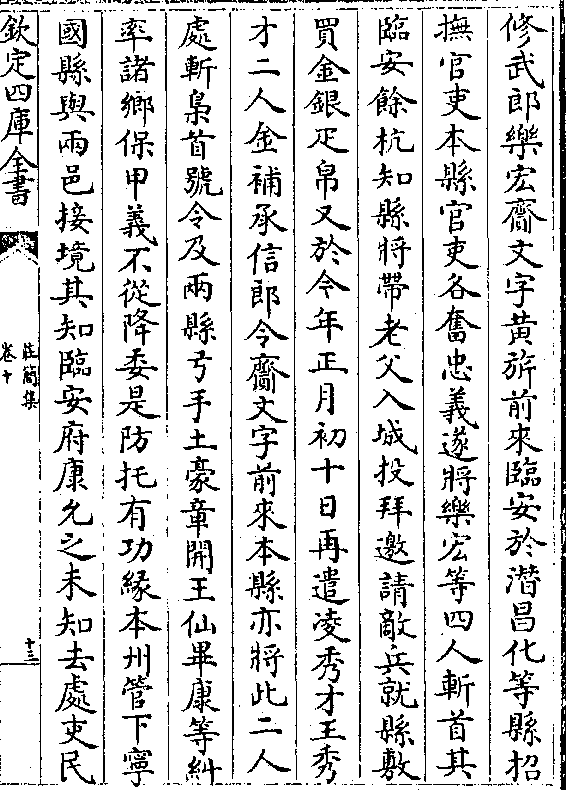 修武郎樂宏齎文字黄旂前來臨安於濳昌化等縣招
撫官吏本縣官吏各奮忠義遂將樂宏等四人斬首其
臨安餘杭知縣將帶老父入城投拜邀請敵兵就縣敷
買金銀疋帛又於今年正月初十日再遣凌秀才王秀
才二人金補承信郎令齎文字前來本縣亦將此二人
處斬梟首號令及兩縣弓手土豪章開王仙畢康等糾
率諸鄉保甲義不從降委是防托有功緣本州管下寧
國縣與兩邑接境其知臨安府康允之未知去處吏民
欽定四庫全書
莊簡集
卷十
十三